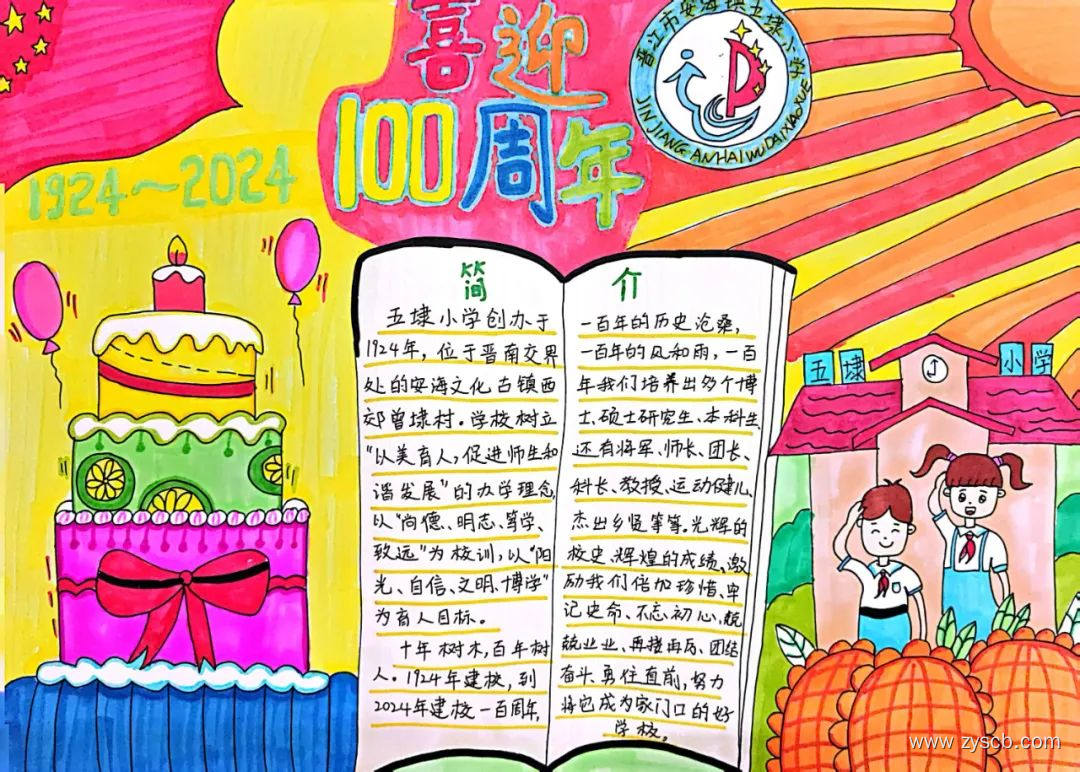 喜迎
100周年
晋江市安海镇五埭小学
JIN JIANG AN HAI WU DAI XIAO XUE
1924～2024
简介
五埭小学创办于
1924年，位于晋南交界
处的安海文化古镇西
郊曾埭村。学校树立
“以美育人，促进师生和
谐发展”的办学理念
以“尚德、明志、笃学、
致远”为校训，以“阳
光、自信、文明、博学”
为育人目标。
十年树木，百年树
人。1924年建校，到
2024年建校一百周年，
一百年的历史沧桑，
一百年的风和雨，一百
年我们培养出多个博
士、硕士研究生、本科生、
还有将军、师长、团长、
科长、教授、运动健儿、
杰出乡贤等等。光辉的
校史、辉煌的成绩、激
励我们倍加珍惜、牢
记史命、不忘初心，兢
兢业业、再接再厉、团结
奋斗、勇往直前，努力
将它成为家门口的好
学校。
五埭小学
www.zyscb.com